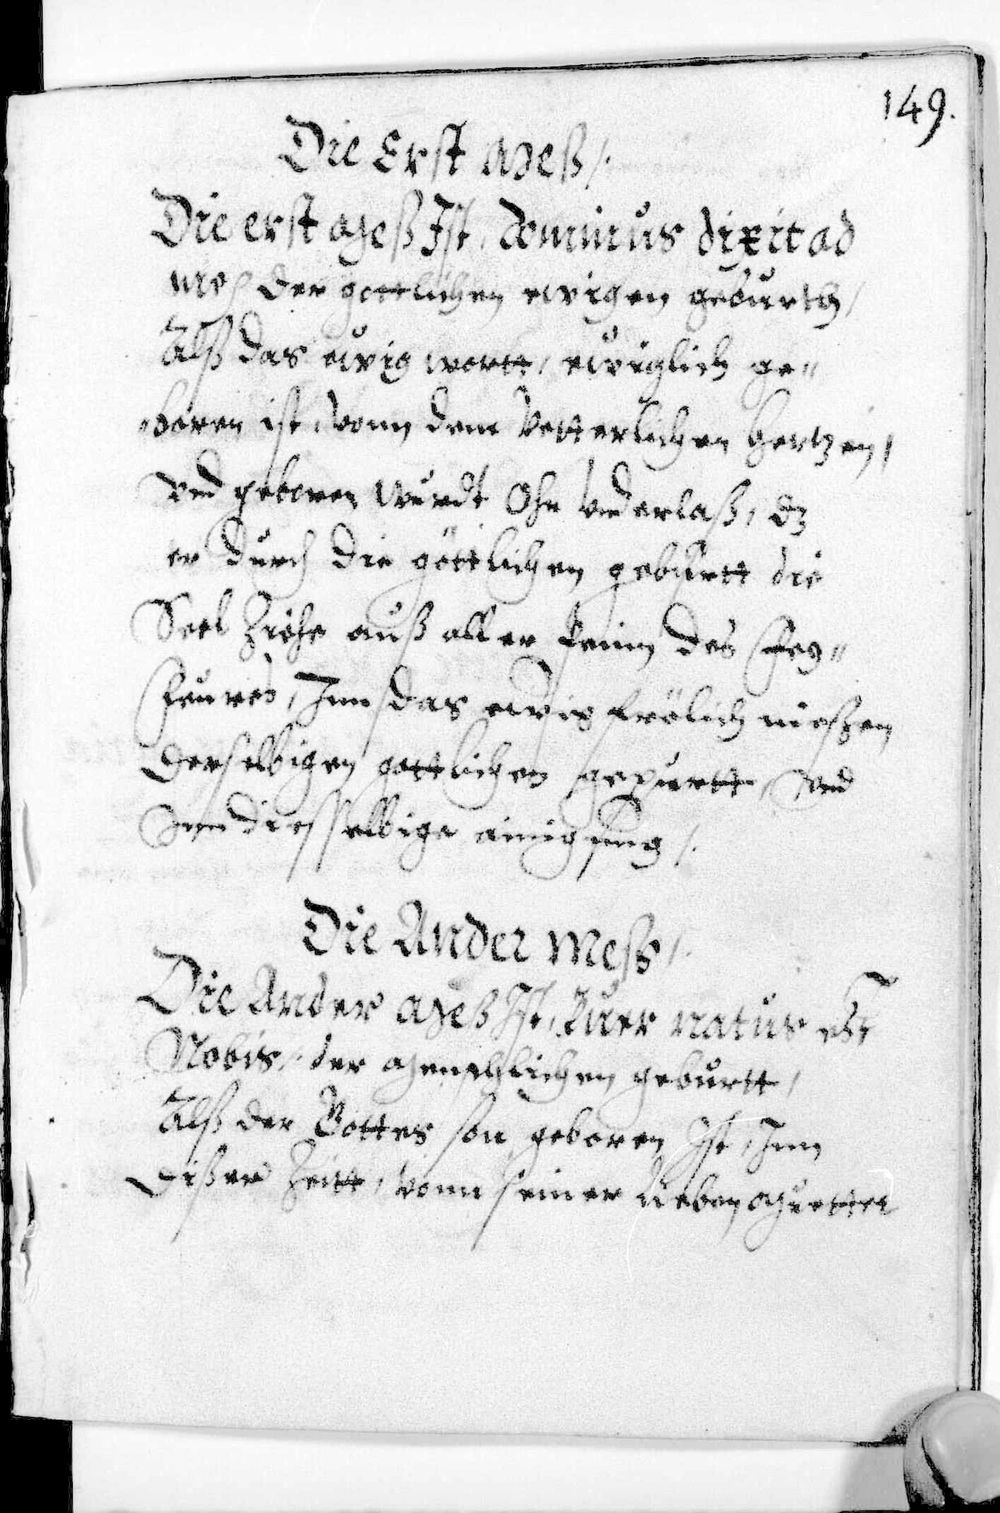 149.
Die Erst Meß /.
Die erst Meß Ist, Dominus dixit ad
me / der gottlichen ewigen geburth /
Alß das ewig wortt / ewiglich ge"
"boren ist, vonn dem Vetterlichen hertzen /
vnd geboren wurdt Ohn vnderlaß, dz
er durch die göttlichen geburtt die
Seel Ziehe auß aller Peinn des Feg"
Feures, Inn das ewig frölich niessen
derselbigen gottlichen gepurtt, vnd
Inn diesselbige einigung /.
Die Ander Mess /.
Die Ander Meß Ist, Puer natus est
Nobis, der Menschlichen geburtt /
Alß der Gottes son geboren Ist, Inn
diser Zeitt, vonn seiner lieben Muetter